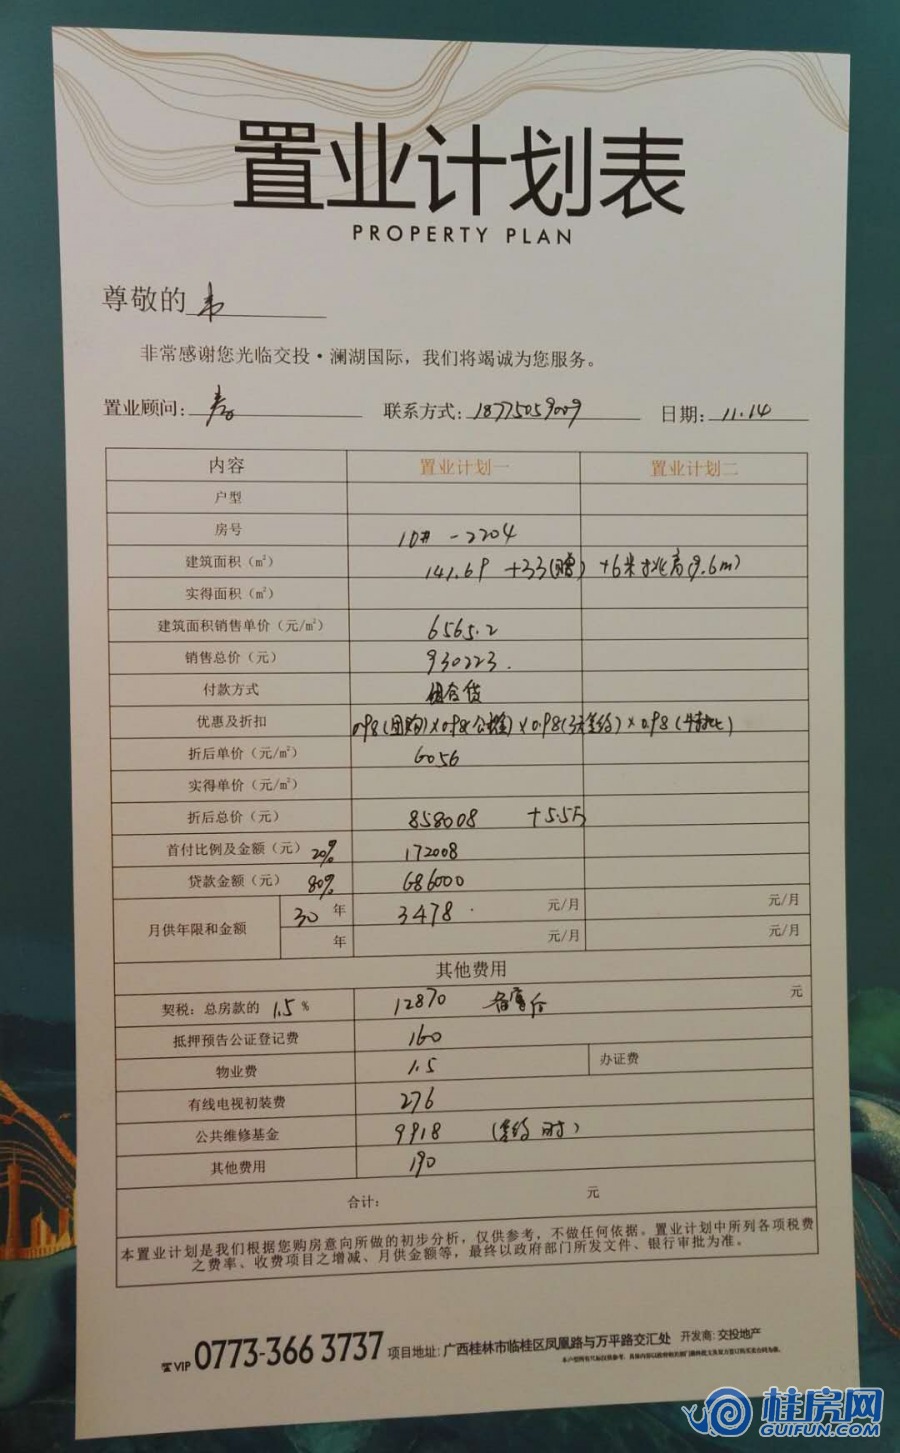 置业计划表
PROPERTY PLAN
尊敬的 韦
非常感谢您光临交投·澜湖国际，我们将竭诚为您服务。
置业顾问: 联系方式: 18775059009 日期: 11.14
内容 置业计划一 置业计划二
户型
房号 10# -2204
建筑面积（㎡） 141.69 +33(赠) +6米挑高(9.6m)
实得面积（㎡）
建筑面积销售单价（元/㎡） 6565.2
销售总价（元） 930223.
付款方式 组合贷
优惠及折扣 0.98(团购)×0.98(公摊)×0.98(签约)×0.98
折后单价（元/㎡） 6056
实得单价（元/㎡）
折后总价（元） 858008 +5.5万
首付比例及金额（元）20% 172008
贷款金额（元） 80% 686000
月供年限和金额 30 年 3478 元/月 元/月
年 元/月 元/月
其他费用
契税: 总房款的 1.5 % 12870 元
抵押预告公证登记费 160
物业费 1.5 办证费
有线电视初装费 276
公共维修基金 9918 (签约时)
其他费用 190
合计: 元
本置业计划是我们根据您购房意向所做的初步分析，仅供参考，不做任何依据。置业计划中所列各项税费
之费率、收费项目之增减、月供金额等，最终以政府部门所发文件、银行审批为准。
VIP 0773-366 3737 项目地址: 广西桂林市临桂区凤凰路与万平路交汇处 开发商: 交投地产
桂房网
GUIFUN.COM